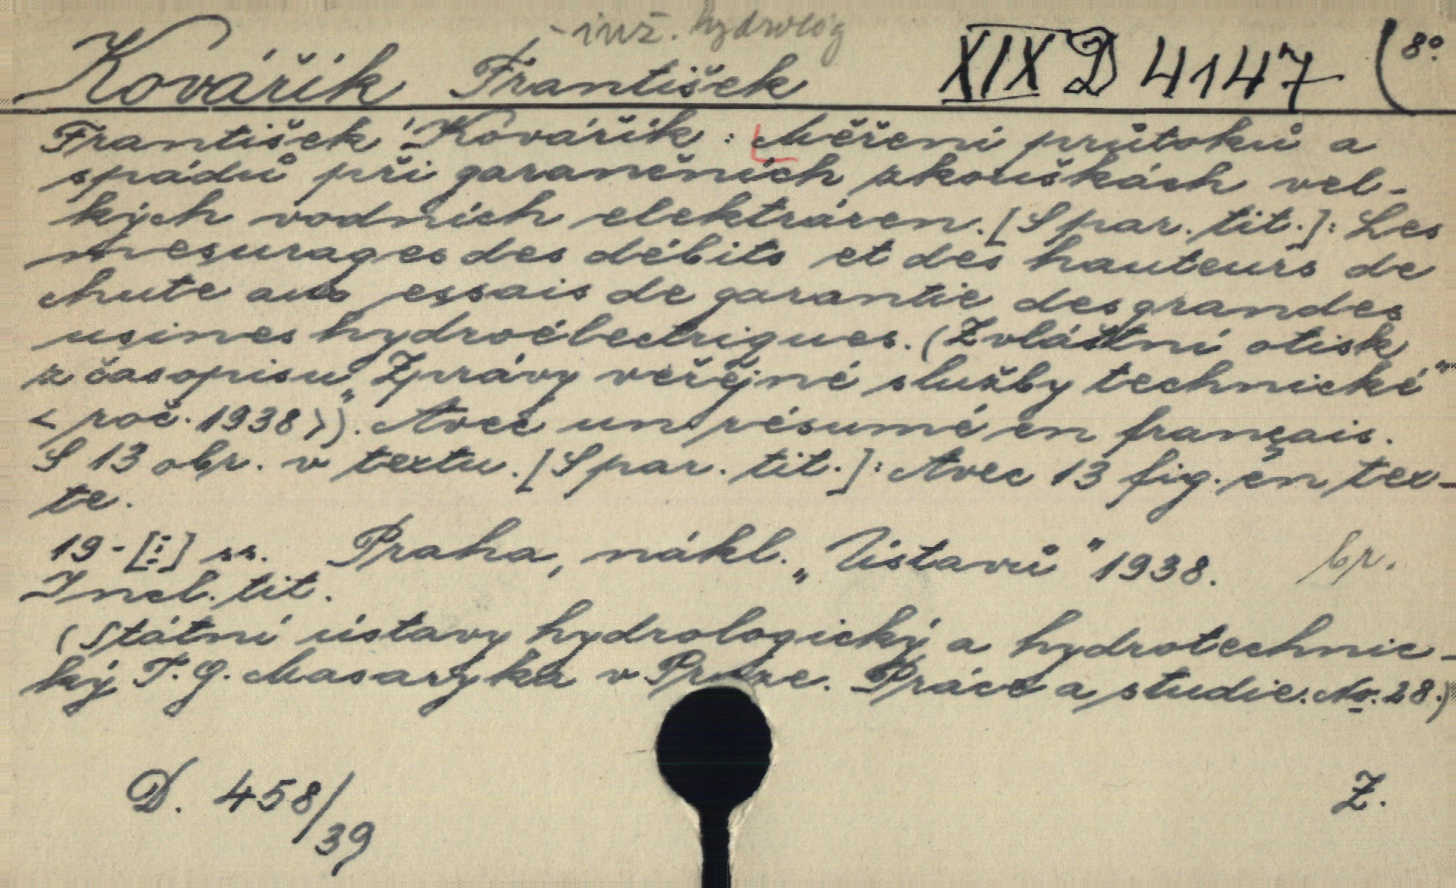 - inž. hydrolog
Kovářík František XIX D 4147 (8°.
František Kovářík: Měření průtoků a
spádů při garančních zkouškách vel-
kých vodních elektráren. [S par. tit.]: Les
mesurages des débits et des hauteurs de
chute aux essais de garantie des grandes
usines hydroélectriques. (Zvláštní otisk
z časopisu „Zprávy veřejné služby technické"
<roč. 1938>). Avec un résumé en français.
S 13 obr. v textu. [S par. tit.]: Avec 13 fig. en tex-
te.
19-[I] ss. Praha, nákl. „Ústavů" 1938. br.
Incl. tit.
(Státní ústavy hydrologický a hydrotechnic-
ký T. G. Masaryka v Praze. Práce a studie. No. 28.)
D. 458/39 Z.